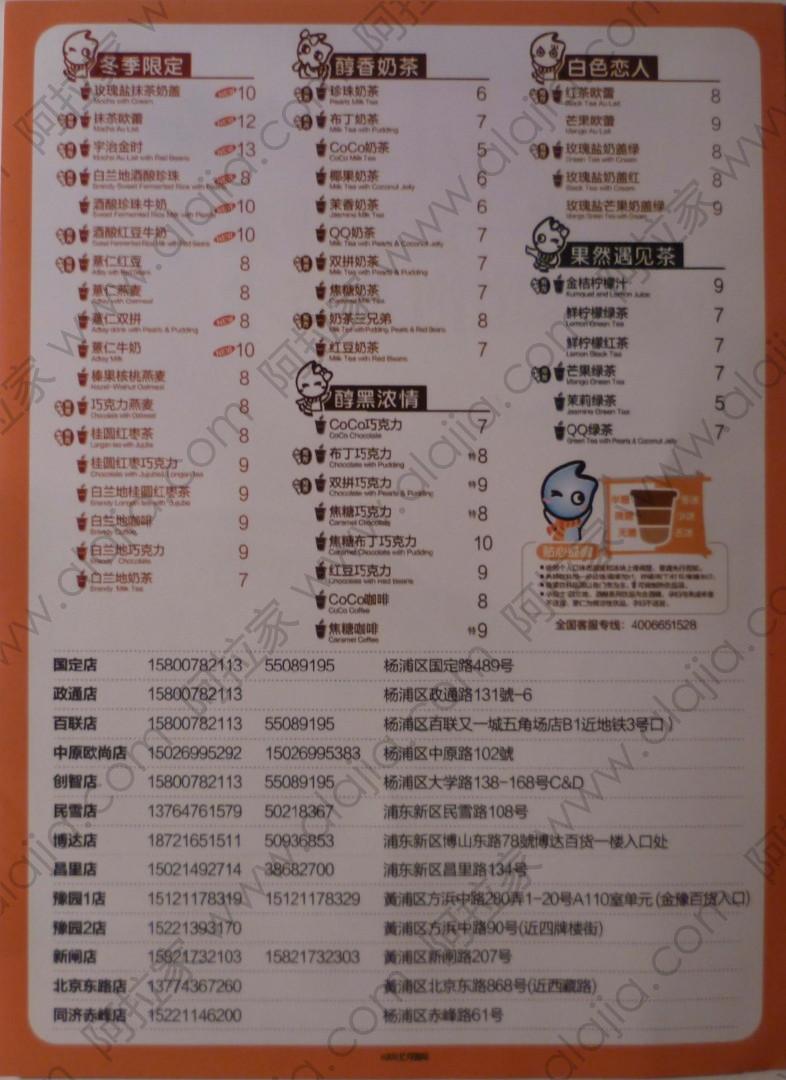 冬季限定
玫瑰盐抹茶奶盖 NEW 10
Macha with Cream
抹茶欧蕾 NEW 12
Macha Au Lait
宇治金时 NEW 13
Macha Au Lait with Red Beans
白兰地酒酸珍珠 NEW 8
Brandy Sweet Fermented Rice with
酒酸珍珠牛奶 NEW 10
Sweet Fermented Rice Milk with Pearls
酒酸红豆牛奶 NEW 10
Sweet Fermented Rice Milk with Red Beans
薏仁红豆 8
薏仁燕麦 8
薏仁双拼 NEW 8
Adlay drink with Pearls & Pudding
薏仁牛奶 NEW 10
Adlay Milk
榛果核桃燕麦 8
Hazel-Walnut Oatmeal
巧克力燕麦 8
Chocolate with Oatmeal
桂圆红枣茶 8
Longan tea with Jujube
桂圆红枣巧克力 9
Chocolate with Jujube/Longan Tea
白兰地桂圆红枣茶 9
Brandy Longan tea with Jujube
白兰地咖啡 9
Brandy Coffee
白兰地巧克力 9
Brandy Chocolate
白兰地奶茶 7
Brandy Milk Tea
醇香奶茶
珍珠奶茶 6
Pearls Milk Tea
布丁奶茶 7
Milk Tea with Pudding
CoCo奶茶 5
CoCo Milk Tea
椰果奶茶 6
Milk Tea with Coconut Jelly
茉香奶茶 6
Jasmine Milk Tea
QQ奶茶 7
Milk Tea with Pearls & Coconut Jelly
双拼奶茶 7
Milk Tea with Pearls & Pudding
焦糖奶茶 7
Caramel Milk Tea
奶茶三兄弟 8
Milk Tea with Pudding, Pearls & Red Beans
红豆奶茶 7
Milk Tea with Red Beans
醇黑浓情
CoCo巧克力 7
CoCo Chocolate
布丁巧克力 特8
Chocolate with Pudding
双拼巧克力 特9
Chocolate with Pearls & Pudding
焦糖巧克力 特8
Caramel Chocolate
焦糖布丁巧克力 10
Caramel Chocolate with Pudding
红豆巧克力 9
Chocolate with Red Beans
CoCo咖啡 8
CoCo Coffee
焦糖咖啡 特9
Caramel Coffee
白色恋人
红茶欧蕾 8
Black Tea Au Lait
芒果欧蕾 9
Mango Au Lait
玫瑰盐奶盖绿 8
Green Tea with Cream
玫瑰盐奶盖红 8
Black Tea with Cream
玫瑰盐芒果奶盖绿 9
Mango Green Tea with Cream
果然遇见茶
金桔柠檬汁 9
Kumquat and Lemon Juice
鲜柠檬绿茶 7
Lemon Green Tea
鲜柠檬红茶 7
Lemon Black Tea
芒果绿茶 7
Mango Green Tea
茉莉绿茶 5
Jasmine Green Tea
QQ绿茶 7
Green Tea with Pearls & Coconut Jelly
全国客服专线：4006651528
国定店 15800782113 55089195 杨浦区国定路489号
政通店 15800782113 杨浦区政通路131號-6
百联店 15800782113 55089195 杨浦区百联又一城五角场店B1近地铁3号口）
中原欧尚店 15026995292 15026995383 杨浦区中原路102號
创智店 15800782113 55089195 杨浦区大学路138-168号C&D
民雪店 13764761579 50218367 浦东新区民雪路108号
博达店 18721651511 50936853 浦东新区博山东路78號博达百货一楼入口处
昌里店 15021492714 38682700 浦东新区昌里路134号
豫园1店 15121178319 15121178329 黃浦区方浜中路280弄1-20号A110室单元(金豫百货入口)
豫园2店 15221393170 黃浦区方浜中路90号(近四牌楼街)
新闸店 15821732103 15821732303 黃浦区新闸路207号
北京东路店 13774367260 黃浦区北京东路868号(近西藏路)
同济赤峰店 15221146200 杨浦区赤峰路61号
阿拉家 www.alajia.com